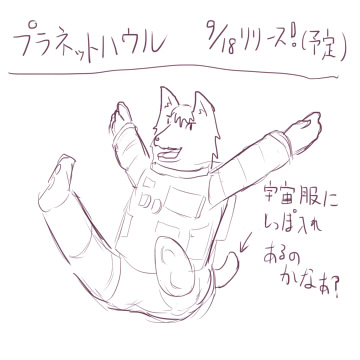 プラネットハウル 9/18リリース!(予定)
宇宙服に
しっぽ入れ
あるの
かなあ?